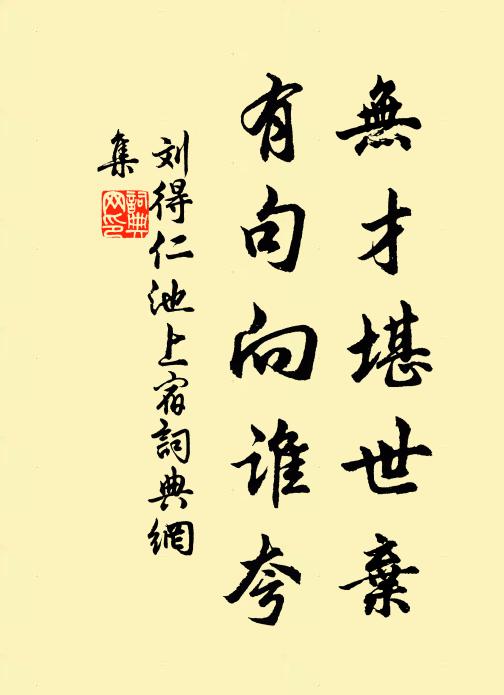 無才堪世棄
有句向谁夸
刘得仁池上宿詞典網
集
詞典
网印